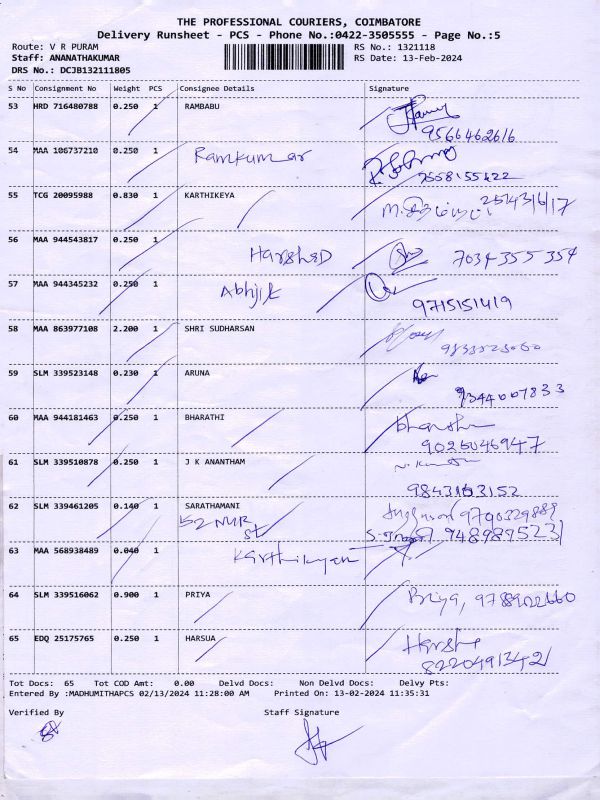 THE PROFESSIONAL COURIERS, COIMBATORE
Delivery Runsheet - PCS - Phone No.:0422-3505555 - Page No.:5
Route: V R PURAM RS No.: 1321118
Staff: ANANATHAKUMAR RS Date: 13-Feb-2024
DRS No.: DCJB132111805
S No Consignment No Weight PCS Consignee Details Signature
53 HRD 716480788 0.250 1 RAMBABU
9566462616
54 MAA 106737210 0.250 1 Ramkumar
7558155422
55 TCG 20095988 0.830 1 KARTHIKEYA
56 MAA 944543817 0.250 1
Harshed 7034355354
57 MAA 944345232 0.250 1 Abhjik
9715151419
58 MAA 863977108 2.200 1 SHRI SUDHARSAN
59 SLM 339523148 0.230 1 ARUNA
9344007833
60 MAA 944181463 0.250 1 BHARATHI
9026046947
61 SLM 339510878 0.250 1 J K ANANTHAM
9843163152
62 SLM 339461205 0.140 1 SARATHAMANI
9790329888
52 NVR
St
63 MAA 568938489 0.040 1 Karthikeyan
64 SLM 339516062 0.900 1 PRIYA Priya, 9788902660
65 EDQ 25175765 0.250 1 HARSUA Harsha
8220491342
Tot Docs: 65 Tot COD Amt: 0.00 Delvd Docs: Non Delvd Docs: Delvy Pts:
Entered By :MADHUMITHAPCS 02/13/2024 11:28:00 AM Printed On: 13-02-2024 11:35:31
Verified By Staff Signature